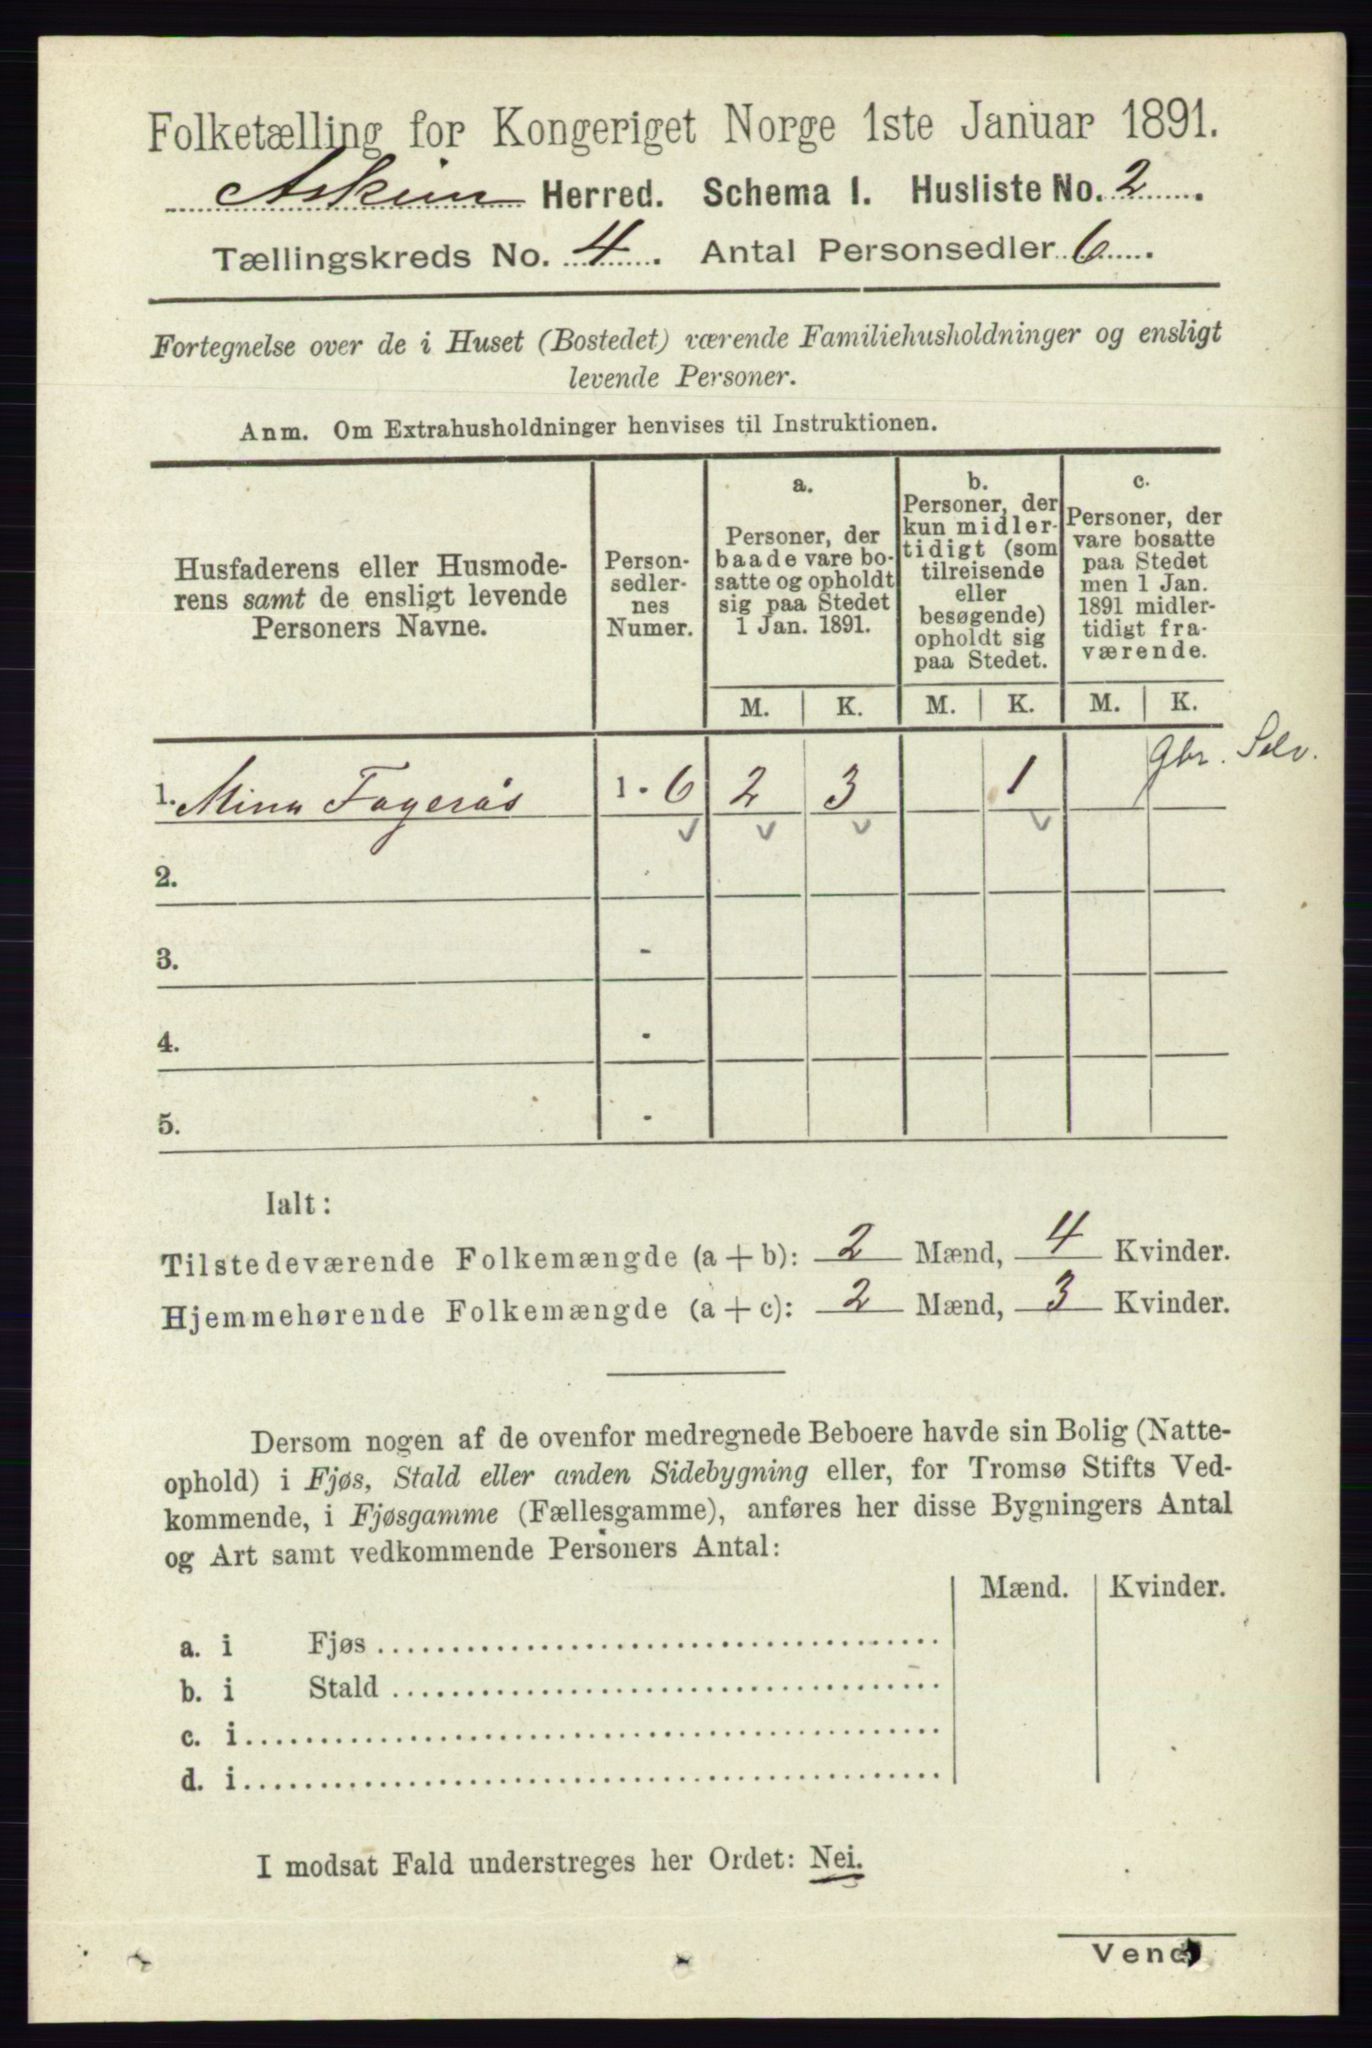 Folketælling for Kongeriget Norge 1ste Januar 1891.
Askim Herred. Schema I. Husliste No. 2.
Tællingskreds No. 4. Antal Personsedler 6.
Fortegnelse over de i Huset (Bostedet) værende Familiehusholdninger og ensligt
levende Personer.
Anm. Om Extrahusholdninger henvises til Instruktionen.
Husfaderens eller Husmode-
rens samt de ensligt levende
Personers Navne.
Person-
sedler-
nes
Numer.
a.
Personer, der
baade vare bo-
satte og opholdt
sig paa Stedet
1 Jan. 1891.
b.
Personer, der
kun midler-
tidigt (som
tilreisende
eller
besøgende)
opholdt sig
paa Stedet.
c.
Personer, der
vare bosatte
paa Stedet
men 1 Jan.
1891 midler-
tidigt fra-
værende.
M. K. M. K. M. K.
1. Mina Fagerås 1 - 6 2 3 1 gbr. Selv.
2. -
3. -
4. -
5. -
Ialt:
Tilstedeværende Folkemængde (a + b): 2 Mænd, 4 Kvinder.
Hjemmehørende Folkemængde (a + c): 2 Mænd, 3 Kvinder.
Dersom nogen af de ovenfor medregnede Beboere havde sin Bolig (Natte-
ophold) i Fjøs, Stald eller anden Sidebygning eller, for Tromsø Stifts Ved-
kommende, i Fjøsgamme (Fællesgamme), anføres her disse Bygningers Antal
og Art samt vedkommende Personers Antal:
Mænd. Kvinder.
a. i Fjøs
b. i Stald
c. i
d. i
I modsat Fald understreges her Ordet: Nei.
Vend